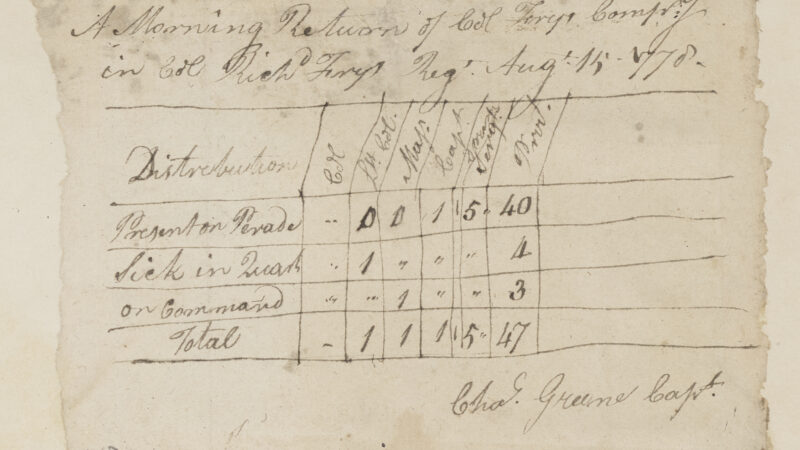 A Morning Return of Col Frys Comp.y
in Col Rich.d Frys Reg.t Aug.t 15 1778.
Distrebution Col L.t Col. Maj.r Cap.t Serg.ts Priv.t
Present on Perade " 0 0 1 5 " 40
Sick in Quart " 1 " " " 4
on Command " " 1 " " 3
Total - 1 1 1 5 " 47
Cha.s Greene Cap.t